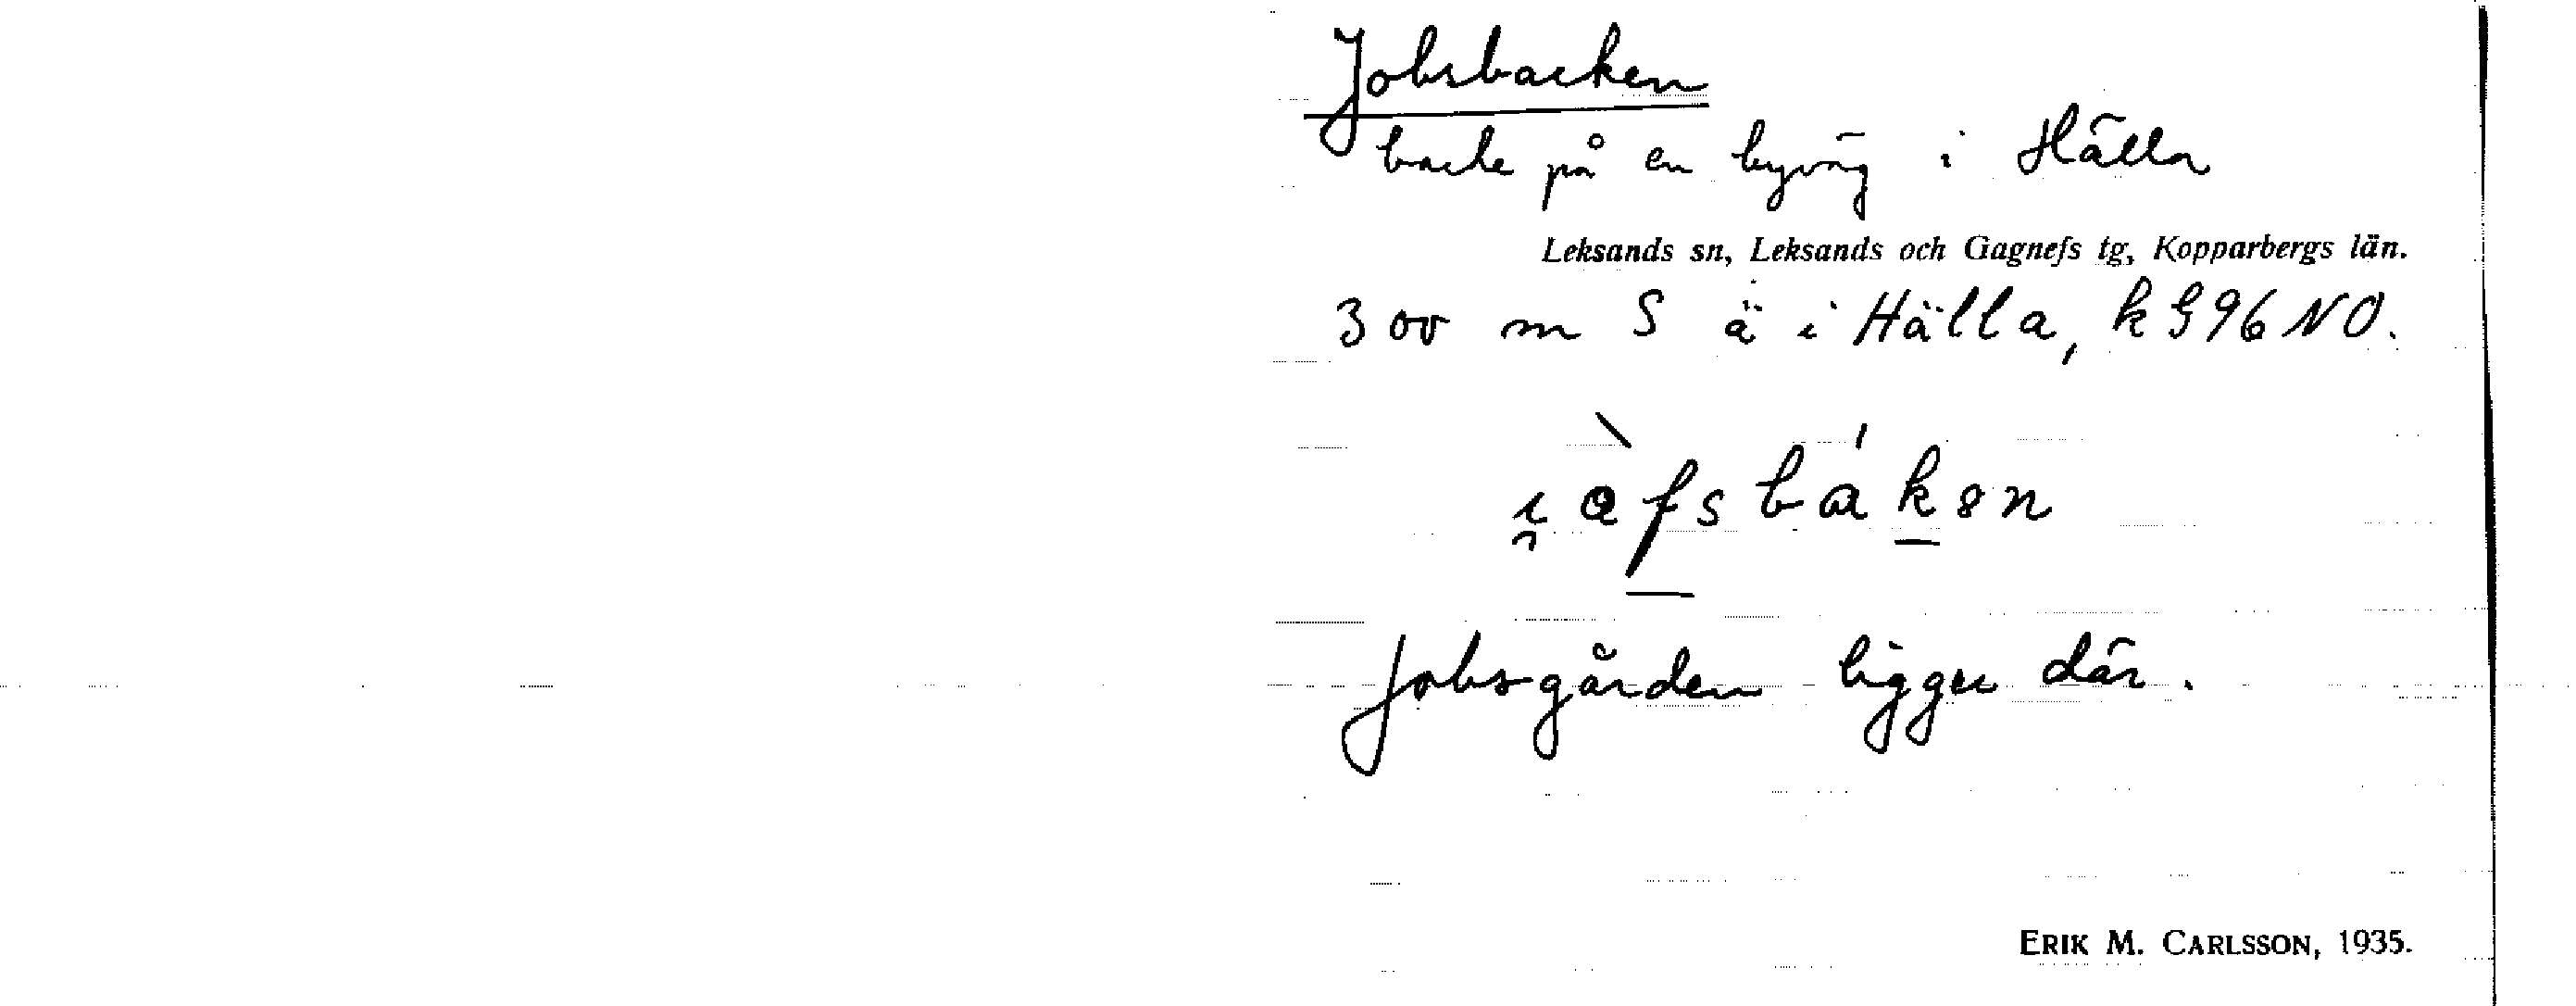 Jobsbacken
backe på en byväg i Hälla
Leksands sn, Leksands och Gagnefs tg, Kopparbergs län.
300 m S ä i Hälla, k G 96 NO.
Jobsgården ligger där.
ERIK M. CARLSSON, 1935.